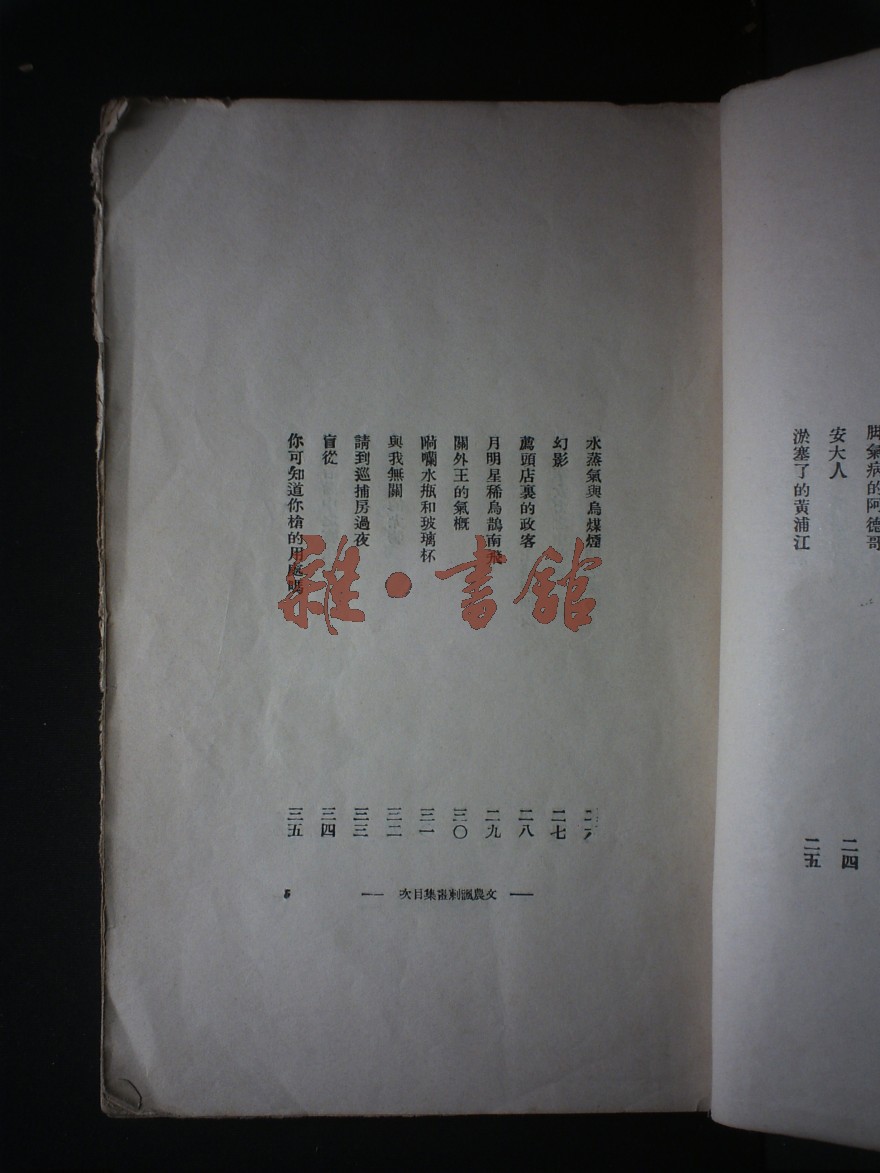 脚氣病的阿德哥
安大人 二四
淤塞了的黃浦江 二五
水蒸氣與烏煤煙 二六
幻影 二七
薦頭店裏的政客 二八
月明星稀烏鵲南飛 二九
關外王的氣槪 三〇
嗬囒水瓶和玻璃杯 三一
與我無關 三二
請到巡捕房過夜 三三
盲從 三四
你可知道你槍的用處嗎 三五
文農諷刺畫集目次
5
雜·書館